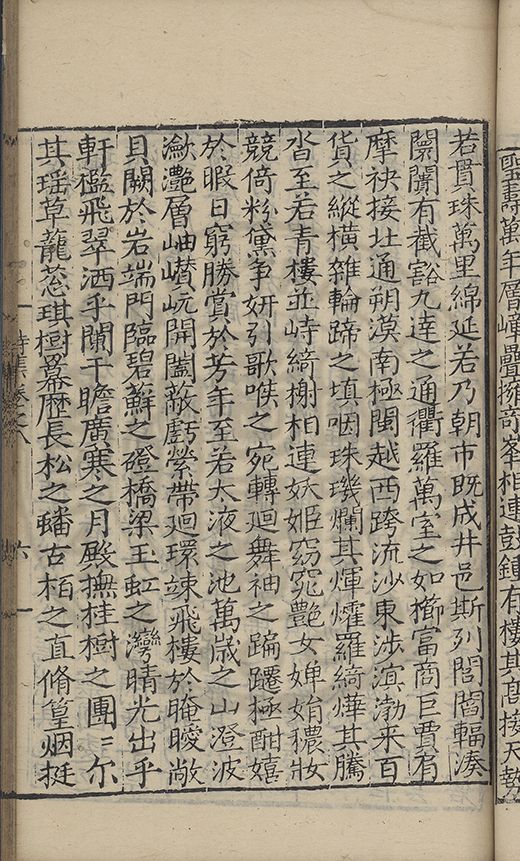 聖壽萬年層巒疊擁奇峯相連鼓鍾有樓其高接天勢
若貫珠萬里綿延若乃朝市既成井邑斯列閭閻輻湊
闤闠有截豁九逵之通衢羅萬室之如櫛富商巨賈肩
摩袂接北通朔漠南極閩越西跨流沙東涉溟渤来百
貨之縱橫雜輪蹄之填咽珠璣爛其煇爟羅綺燁其騰
沓至若青樓並峙綺榭相連妖姬窈窕艷女嬋娟穠妝
競倚粉黛争妍引歌喉之宛轉迴舞袖之蹁躚極酣嬉
於暇日窮勝賞於芳年至若太液之池萬歲之山澄波
瀲灧層岫巑岏開闔蔽虧縈帶迴環竦飛樓於晻曖敞
貝闕於岩端門臨碧蘚之磴橋梁玉虹之灣晴光出乎
軒檻飛翠洒乎闌干瞻廣寒之月殿撫桂樹之團〻尔
其瑶草龍葱琪樹羃歷長松之蟠古栢之直脩篁烟挺
卷之八 六